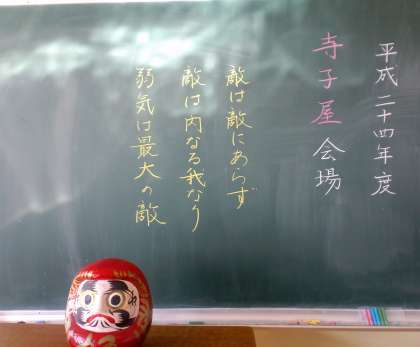 平成二十四年度
寺子屋会場
敵は敵にあらず
敵は内なる我なり
弱気は最大の敵